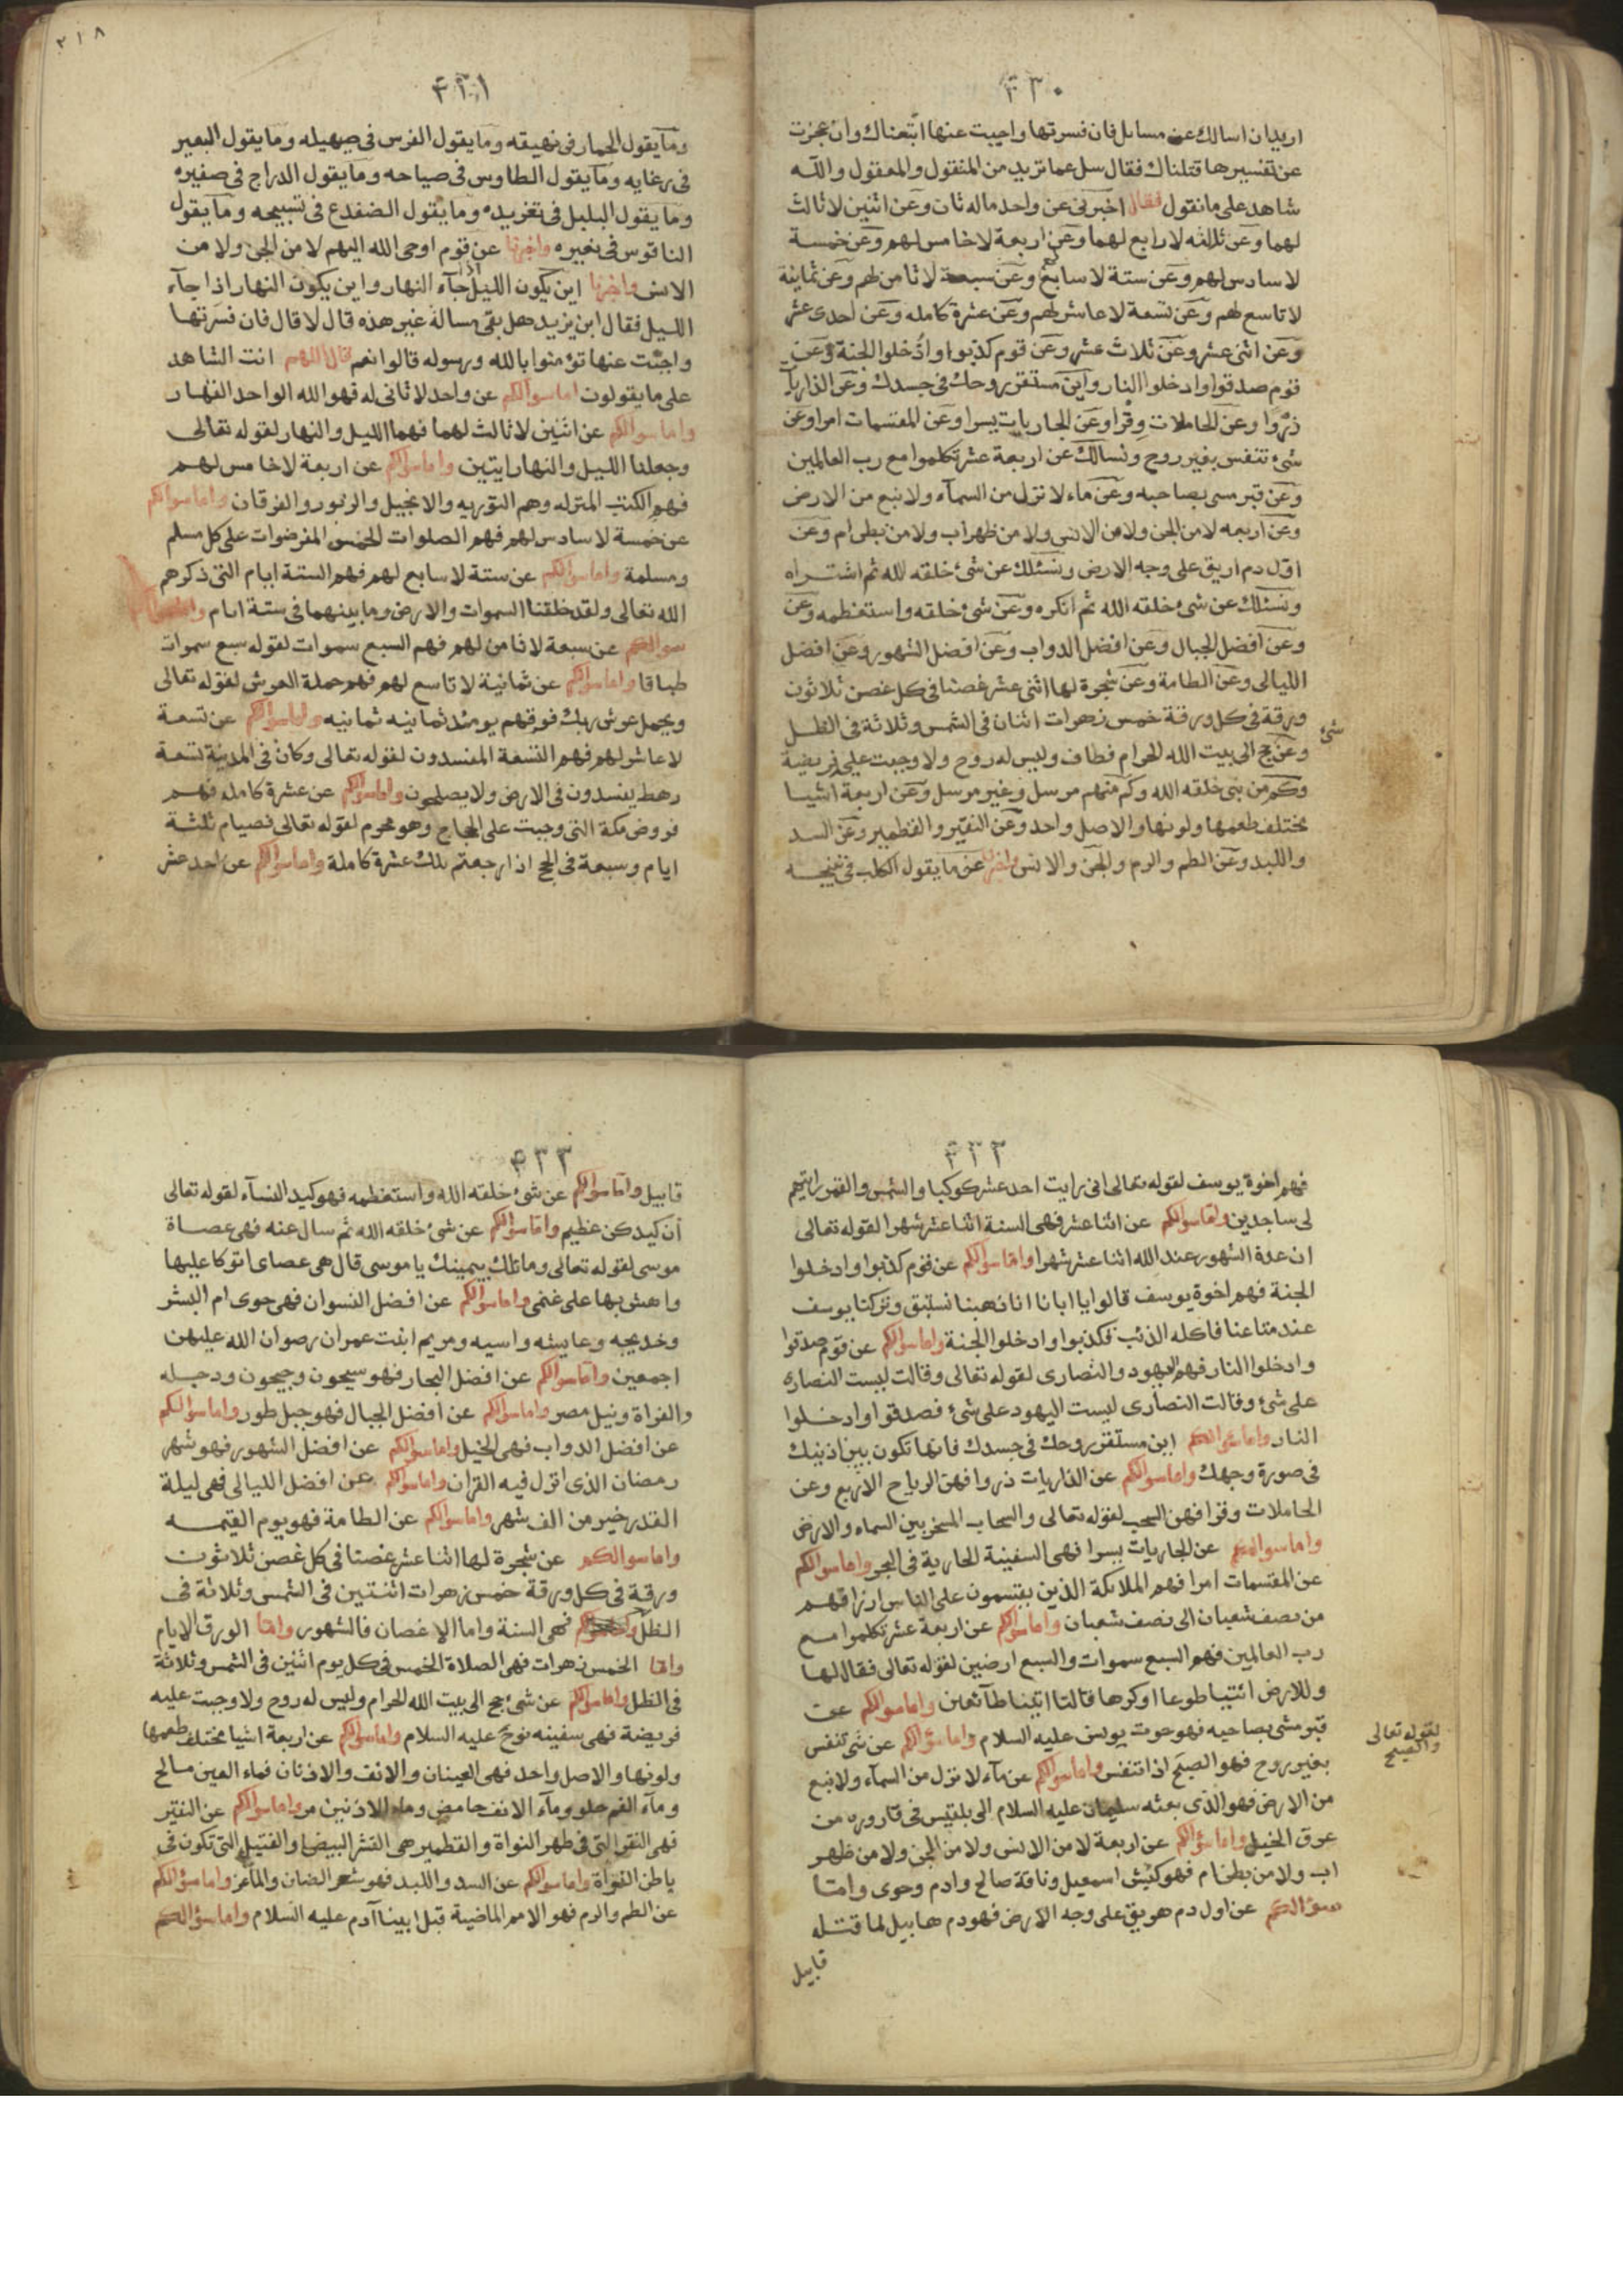 ٤٣٠
اريد ان اسالك عن مسايل فان فسرتها واجبت عنها اتبعناك وان عجزت
عن تفسيرها قتلناك فقال سل عما تريد من المنقول والمعقول والله
شاهد على ما نقول فقال اخبرنى عن واحد ماله ثان وعن اثنين لا ثالث
لهما وعن ثلثه لا رابع لهما وعن اربعة لا خامس لهم وعن خمسة
لا سادس لهم وعن ستة لا سابع وعن سبعة لا ثامن لهم وعن ثمانية
لا تاسع لهم وعن تسعة لا عاشر لهم وعن عشرة كامله وعن احدى عشر
وعن اثنى عشر وعن ثلاث عشر وعن قوم كذبوا وادخلوا الجنة وعن
قوم صدقوا وادخلوا النار واين مستقر روحك فى جسدك وعن الذاريات
ذروا وعن الحاملات وقرا وعن الجاريات يسرا وعن المقتسمات امرا وعن
شىء تنفس بغير روح ونسالك عن اربعة عشر تكلموا مع رب العالمين
وعن قبر مسى بصاحبه وعن ماء لا نزل من السمآء ولا نبع من الارض
وعن اربعه لا من الجن ولا من الانس ولا من ظهر اب ولا من بطن ام وعن
اول دم اريق على وجه الارض ونسئلك عن شئ خلقه لله ثم اشتراه
ونسئلك عن شئ خلقه الله ثم انكره وعن شئ خلقه واستعظمه وعن
وعن افضل الجبال وعن افضل الدواب وعن افضل الشهور وعن افضل
الليالى وعن الطامة وعن شجرة لها اثنى عشر غصنا فى كل غصن ثلاثون
ورقة فى كل ورقة خمس زهرات اثنان فى الشمس وثلاثة فى الظل
شئ
وعن حج الى بيت الله الحرام فطاف وليس له روح ولا وجبت عليه فريضية
وكم من نبى خلقه الله وكم منهم مرسل وغير مرسل وعن اربعة اشيا
مختلف طعمها ولونها والاصل واحد وعن النقير والقطمير وعن السد
واللبد وعن الطم والرم والجن والانس واخبرنا عن ما يقول الكلب فى نبيحه
٢١٨
٤٣١
وما يقول الحمار فى نهيقه وما يقول الفرس فى صهيله وما يقول البعير
فى رغايه وما يقول الطاوس فى صياحه وما يقول الدراج فى صفيره
وما يقول البلبل فى تغريده وما يقول الضفدع فى تسبيحه وما يقول
الناقوس فى نعيره واخبرنا عن قوم اوحى الله اليهم لا من الجن ولا من
الانس واخبرنا اين يكون الليل اذا جآء النهار واين يكون النهار اذا جآء
الليل فقال ابن يزيد هل بقى مسالة غير هذه قال لا قال فان فسرتها
واجبت عنها تؤمنوا بالله ورسوله قالوا نعم قال اللهم انت الشاهد
على ما يقولون اما سوالكم عن واحد لا ثانى له فهو الله الواحد القهار
واما سوالكم عن اثنين لا ثالث لهما فهما الليل والنهار لقوله تعالى
وجعلنا الليل والنهار ايتين واما سوالكم عن اربعة لا خامس لهم
فهم الكتب المنزله وهم التوريه والانجيل والزبور والفرقان واما سوالكم
عن خمسة لا سادس لهم فهم الصلوات الخمس المفرضوات على كل مسلم
ومسلمة واما سوالكم عن ستة لا سابع لهم فهم الستة ايام التى ذكرهم
الله تعالى ولقد خلقنا السموات والارض وما بينهما فى ستة ايام واما
سوالكم عن سبعة لا ثامن لهم فهم السبع سموات لقوله سبع سموات
طباقا واما سوالكم عن ثمانية لا تاسع لهم فهم حملة العرش لقوله تعالى
ويحمل عرش ربك فوقهم يومئذ ثمانيه ثمانيه واما سوالكم عن تسعة
لا عاشر لهم فهم التسعة المفسدون لقوله تعالى وكان فى المدينة تسعة
رهط يفسدون فى الارض ولا يصلحون واما سوالكم عن عشرة كامله فهم
فروض مكة التى وجبت على الحجاج وهو محرم لقوله تعالى فصيام ثلثة
ايام وسبعة فى الحج اذا رجعتم تلك عشرة كاملة واما سوالكم عن احد عشر
٤٣٢
فهم اخوة يوسف لقوله تعالى انى رايت احد عشر كوكبا والشمس والقمر رايتهم
لى ساجدين واما سوالكم عن اثنا عشر فهى السنة اثنا عشر شهرا لقوله تعالى
ان عدة الشهور عند الله اثنا عشر شهرا واما سوالكم عن قوم كذبوا وادخلوا
الجنة فهم اخوة يوسف قالوا يا ابانا انا ذهبنا نستبق وتركنا يوسف
عند متاعنا فاكله الذئب فكذبوا وادخلوا الجنة واما سوالكم عن قوم صدقوا
وادخلوا النار فهم اليهود والنصارى لقوله تعالى وقالت ليست النصارى
على شئ وقالت النصارى ليست اليهود على شئ فصدقوا وادخلوا
النار واما سوالكم اين مستقر روحك فى جسدك فانها تكون بين اذنيك
فى صورة وجهك واما سوالكم عن الذاريات ذروا فهن الرياح الاربع وعن
الحاملات وقرا فهن السحب لقوله تعالى والسحاب المسخر بين السماء والارض
واما سوالكم عن الجاريات يسرا فهى السفينة الجارية فى البحر واما سوالكم
عن المقتسمات امرا فهم الملائكة الذين يقتسمون على الناس ارزاقهم
من نصف شعبان الى نصف شعبان واما سوالكم عن اربعة عشر تكلموا مع
رب العالمين فهم السبع سموات والسبع ارضين لقوله تعالى فقال لها
وللارض ائتيا طوعا او كرها قالتا اتينا طآئعين واما سوالكم عن
قبر مشى بصاحبه فهو حوت يونس عليه السلام واما سوالكم عن شئ تنفس
لقوله تعالى
والصبح
بغير روح فهو الصبح اذا تنفس واما سوالكم عن مآء لا نزل من السمآء ولا نبع
من الارض فهو الذى بعثه سليمان عليه السلام الى بلقيس فى قاروره من
عرق الخيل واما سؤالكم عن اربعة لا من الانس ولا من الجن ولا من ظهر
اب ولا من بطن ام فهو كبش اسمعيل وناقة صالح وادم وحوى واما
سؤالكم عن اول دم هريق على وجه الارض فهو دم هابيل لما قتله
قابيل
٤٣٣
قابيل واما سوالكم عن شئ خلقه الله واستعظمه فهو كيد النسآء لقوله تعالى
ان كيدكن عظيم واما سوالكم عن شئ خلقه الله ثم سال عنه فهى عصاة
موسى لقوله تعالى وما تلك بيمينك يا موسى قال هى عصاى اتوكا عليها
واهش بها على غنمى واما سوالكم عن افضل النسوان فهى حوى ام البشر
وخديجه وعايشه واسيه ومريم ابنت عمران رضوان الله عليهن
اجمعين واما سوالكم عن افضل البحار فهو سيحون وجيحون ودجله
والفراة ونيل مصر واما سوالكم عن افضل الجبال فهو جبل طور واما سوالكم
عن افضل الدواب فهى الخيل واما سوالكم عن افضل الشهور فهو شهر
رمضان الذى انزل فيه القران واما سوالكم عن افضل الليالى فهى ليلة
القدر خير من الف شهر واما سوالكم عن الطامة فهو يوم القيمه
واما سوالكم عن شجرة لها اثنا عشر غصنا فى كل غصن ثلاثون
ورقة فى كل ورقة خمس زهرات اثنتين فى الشمس وثلاثة فى
الظل فهى السنة واما الاغصان فالشهور واما الورق الايام
واما الخمس زهرات فهى الصلاة الخمس فى كل يوم اثنين فى الشمس وثلاثة
فى الظل واما سوالكم عن شئ حج الى بيت الله الحرام وليس له روح ولا وجبت عليه
فريضة فهى سفينه نوح عليه السلام واما سوالكم عن اربعة اشيا مختلف طعمها
ولونها والاصل واحد فهى العينان والانف والاذنان فماء العين مالح
ومآء الفم حلو ومآء الانف حامض وماء الاذنين مر واما سوالكم عن النقير
فهى النقر التى فى ظهر النواة والقطمير هى القشر البيضا والفتيل التى تكون فى
باطن النواة واما سوالكم عن السد واللبد فهو شعر الضان والماعز واما سؤالكم
عن الطم والرم فهو الامم الماضية قبل ابينا آدم عليه السلام واما سؤالكم